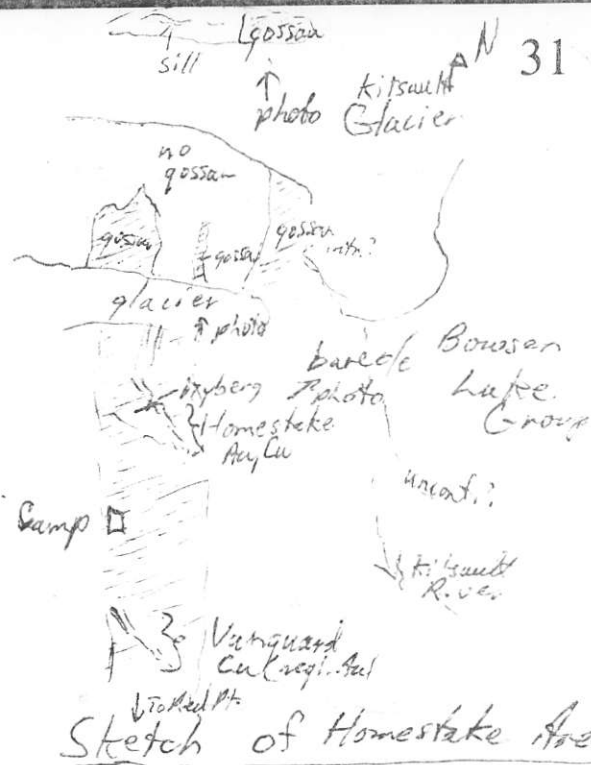 gossan
sill
N
31
photo
Kitsault
Glacier
no
gossan
gossan
gossan
gossan
intr.?
glacier
photo
Bowser
Lake
Group
photo
Homestake
Au, Cu
unconf.?
Camp
Kitsault
River
Vanguard
Cu (negl. Au)
To Red Pt.
Sketch of Homestake Are